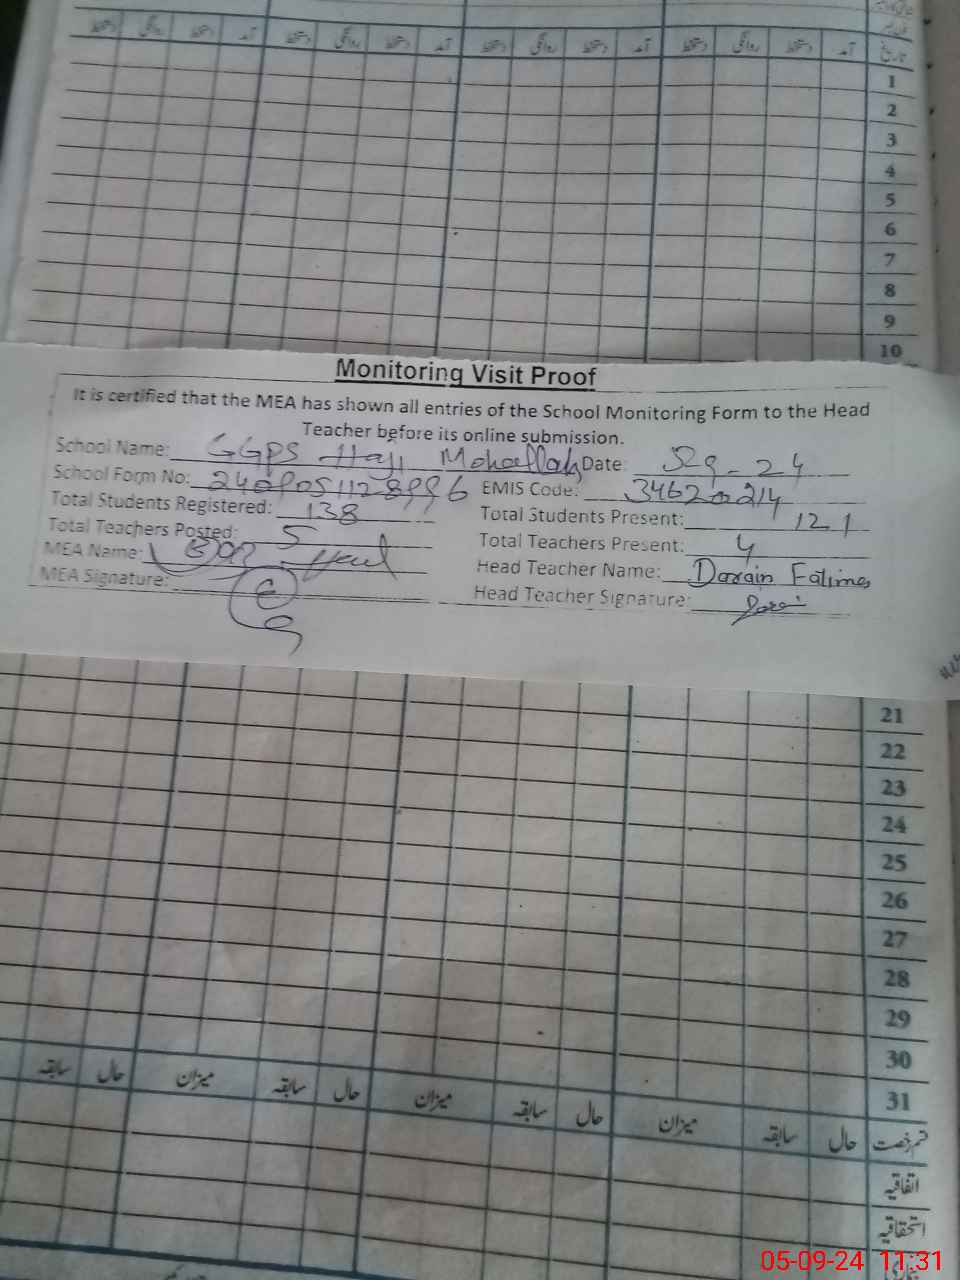 دستخط روانگی دستخط آمد دستخط روانگی دستخط آمد دستخط روانگی دستخط آمد دستخط روانگی دستخط آمد تاریخ
1
2
3
4
5
6
7
8
9
10
Monitoring Visit Proof
It is certified that the MEA has shown all entries of the School Monitoring Form to the Head
Teacher before its online submission.
School Name: GGPS Haji Mohallah Date: 5-9-24
School Form No: EMIS Code:
Total Students Registered: 138 Total Students Present: 121
Total Teachers Posted: 5 Total Teachers Present: 4
MEA Name: Head Teacher Name: Darain Fatima
MEA Signature: Head Teacher Signature:
21
22
23
24
25
26
27
28
29
30
31
سابقہ حال میزان سابقہ حال میزان سابقہ حال میزان سابقہ حال قسم رخصت
اتفاقیہ
استحقاقیہ
05-09-24 11:31